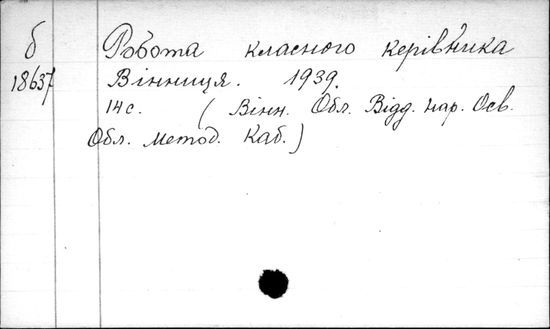 б
18637
Робота класного керівника
Вінниця. 1939.
14 с. (Вінн. Обл. Відд. нар. Осв.
Обл. метод. Каб.)